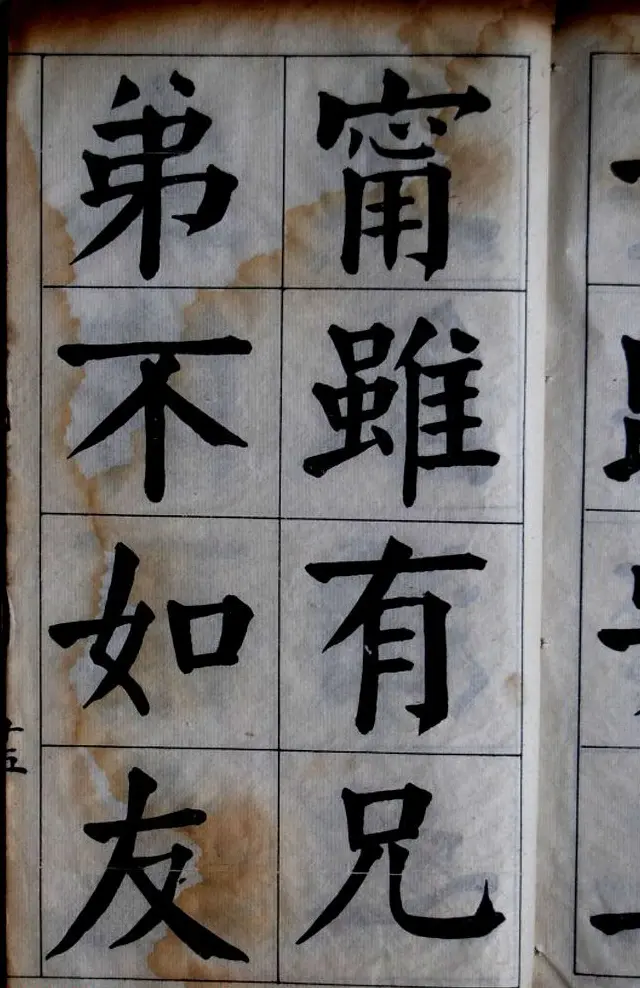 甯雖有兄
弟不如友